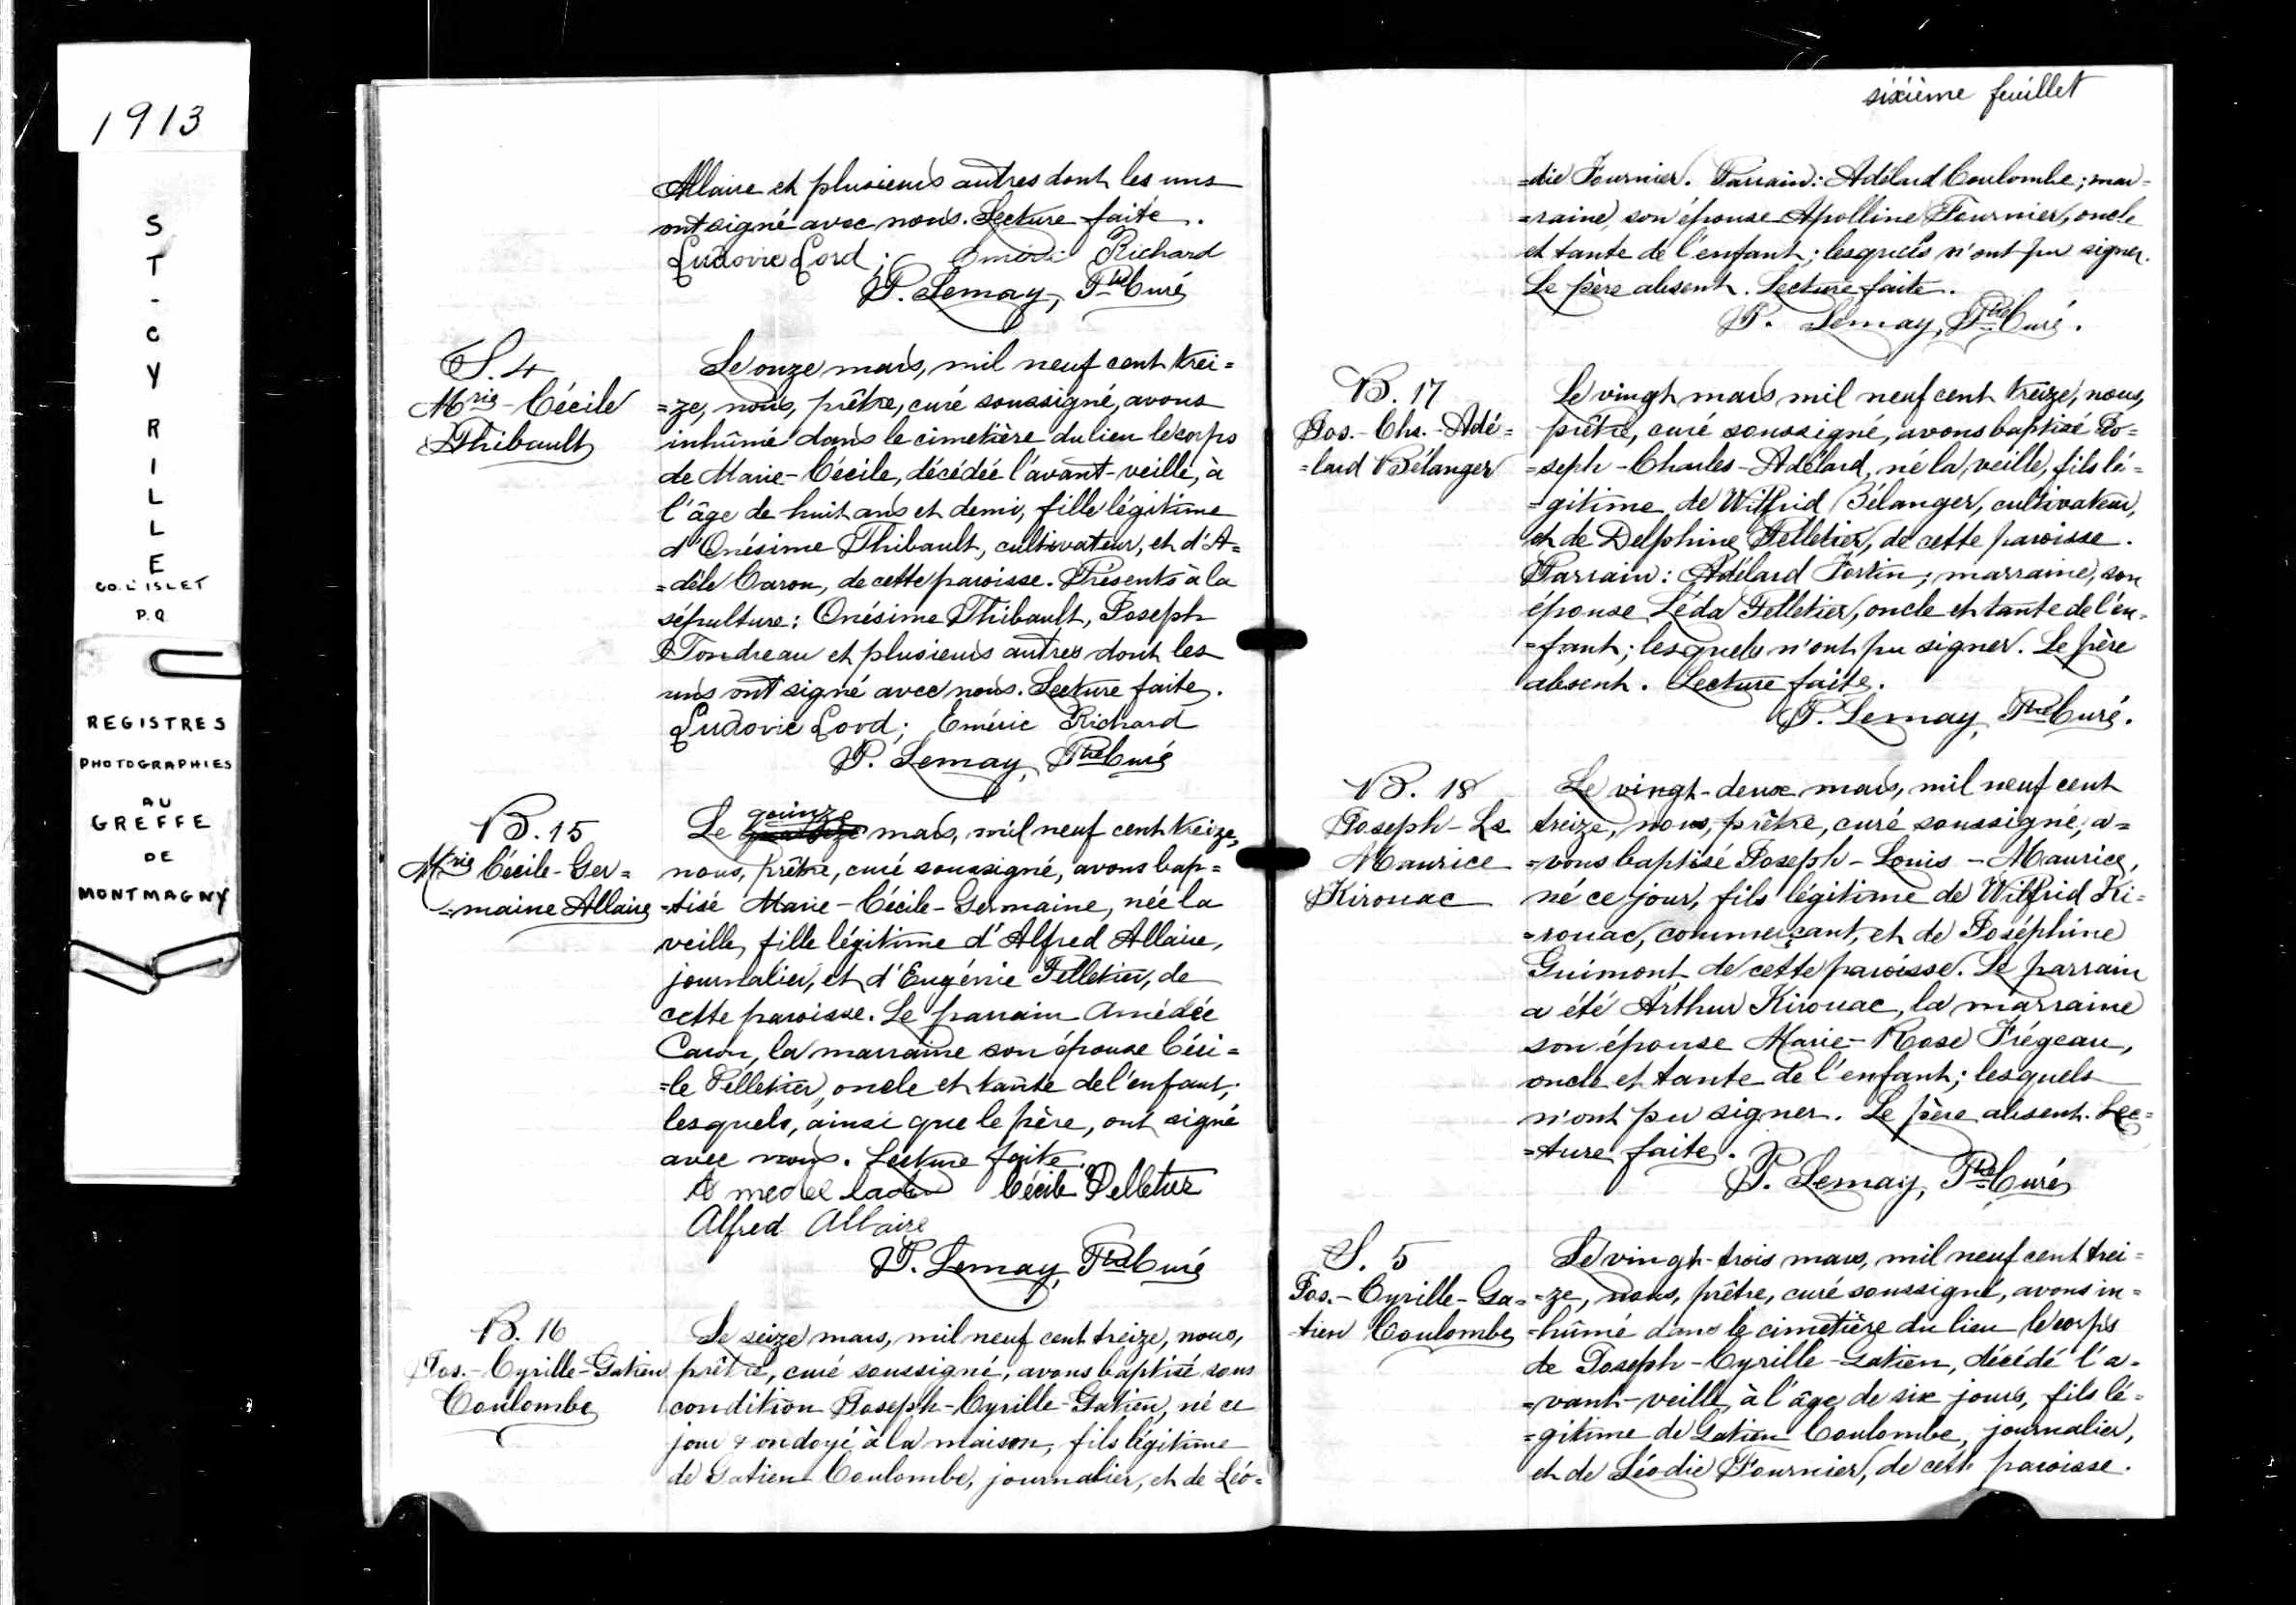 1913
ST-CYRILLE
CO. L'ISLET
P.Q.
REGISTRES
PHOTOGRAPHIES
AU
GREFFE
DE
MONTMAGNY
Allaire et plusieurs autres dont les uns
ont signé avec nous. Lecture faite.
Ludovic Lord; Émeric Richard
P. Lemay, Ptre Curé
S. 4
Mrie-Cécile
Thibault
Le onze mars, mil neuf cent trei=
=ze, nous, prêtre, curé soussigné, avons
inhûmé dans le cimetière du lieu le corps
de Marie-Cécile, décédée l'avant-veille, à
l'âge de huit ans et demi, fille légitime
d'Onésime Thibault, cultivateur, et d'A=
=dèle Caron, de cette paroisse. Présents à la
sépulture: Onésime Thibault, Joseph
Tondreau et plusieurs autres dont les
uns ont signé avec nous. Lecture faite.
Ludovic Lord; Émeric Richard
P. Lemay, Ptre Curé
B. 15
Mrie Cécile-Ger=
=maine Allaire
Le quinze mars, mil neuf cent treize,
nous, prêtre, curé soussigné, avons bap=
=tisé Marie-Cécile-Germaine, née la
veille, fille légitime d'Alfred Allaire,
journalier, et d'Eugénie Pelletier, de
cette paroisse. Le parrain Amédée
Caron, la marraine son épouse Céci=
=le Pelletier, oncle et tante de l'enfant;
lesquels, ainsi que le père, ont signé
avec nous. Lecture faite.
Amedee Caron Cécile Pelletier
Alfred Allaire
P. Lemay, Ptre Curé
B. 16
Jos.-Cyrille-Gatien
Coulombe
Le seize mars, mil neuf cent treize, nous,
prêtre, curé soussigné, avons baptisé sous
condition Joseph-Cyrille-Gatien, né ce
jour & ondoyé à la maison, fils légitime
de Gatien Coulombe, journalier, et de Léo=
sixième feuillet
=die Fournier. Parrain: Adélard Coulombe; mar=
=raine, son épouse Apolline Fournier, oncle
et tante de l'enfant; lesquels n'ont pu signer.
Le père absent. Lecture faite.
P. Lemay, Ptre Curé.
B. 17
Jos.-Chs.-Adé=
=lard Bélanger
Le vingt mars mil neuf cent treize, nous,
prêtre, curé soussigné, avons baptisé Jo=
=seph-Charles-Adélard, né la veille, fils lé=
=gitime de Wilfrid Bélanger, cultivateur,
et de Delphine Pelletier, de cette paroisse.
Parrain: Adélard Fortin; marraine, son
épouse Léda Pelletier, oncle et tante de l'en=
=fant; lesquels n'ont pu signer. Le père
absent. Lecture faite.
P. Lemay, Ptre Curé.
B. 18
Joseph-Ls
Maurice
Kirouac
Le vingt-deux mars, mil neuf cent
treize, nous, prêtre, curé soussigné, a=
=vons baptisé Joseph-Louis-Maurice,
né ce jour, fils légitime de Wilfrid Ki=
=rouac, commerçant, et de Joséphine
Guimont de cette paroisse. Le parrain
a été Arthur Kirouac, la marraine
son épouse Marie-Rose Frégeau,
oncle et tante de l'enfant; lesquels
n'ont pu signer. Le père absent. Lec=
=ture faite.
P. Lemay, Ptre Curé
S. 5
Jos.-Cyrille-Ga=
tien Coulombe
Le vingt-trois mars, mil neuf cent trei=
=ze, nous, prêtre, curé soussigné, avons in=
=hûmé dans le cimetière du lieu le corps
de Joseph-Cyrille-Gatien, décédé l'a=
=vant-veille, à l'âge de six jours, fils lé=
=gitime de Gatien Coulombe, journalier,
et de Léodie Fournier, de cette paroisse.